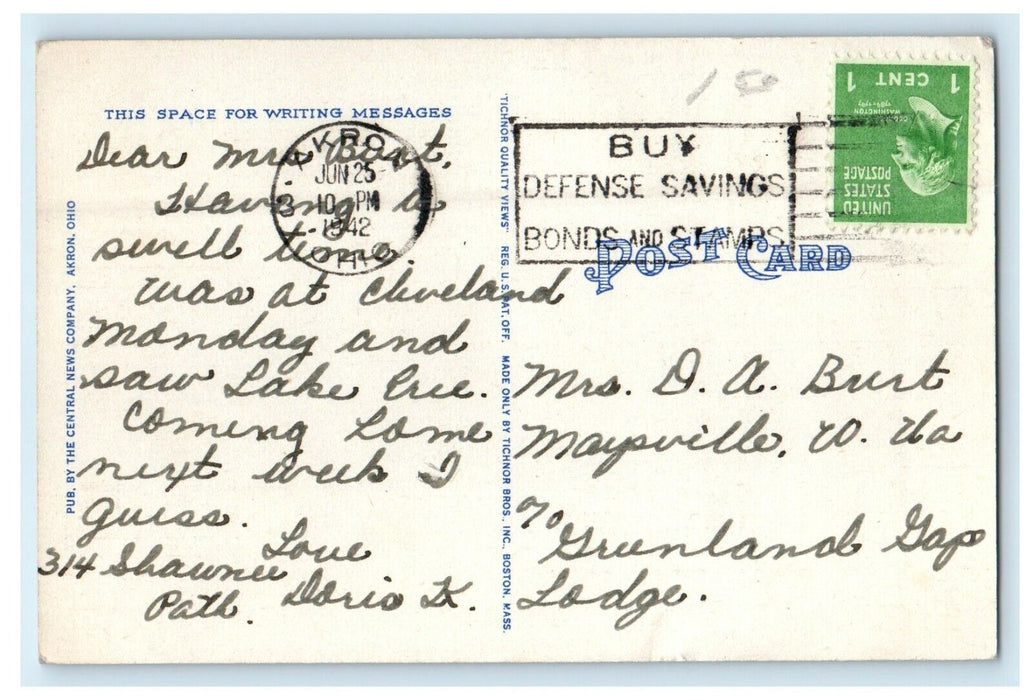 THIS SPACE FOR WRITING MESSAGES
Dear Mrs Burt,
Having a
swell time.
Was at Cleveland
Monday and
saw Lake Erie.
Coming home
next week I
guess.
Love
Doris K.
314 Shawnee
Path.
PUB. BY THE CENTRAL NEWS COMPANY, AKRON, OHIO
"TICHNOR QUALITY VIEWS" REG. U. S. PAT. OFF. MADE ONLY BY TICHNOR BROS., INC., BOSTON, MASS.
AKRON
JUN 25
10 PM
1942
OHIO
3
BUY
DEFENSE SAVINGS
BONDS AND STAMPS
150
UNITED
STATES
POSTAGE
WASHINGTON
1789-1797
1 CENT 1
POST CARD
Mrs. D. A. Burt
Maysville, W. Va
c/o Greenland Gap
Lodge.